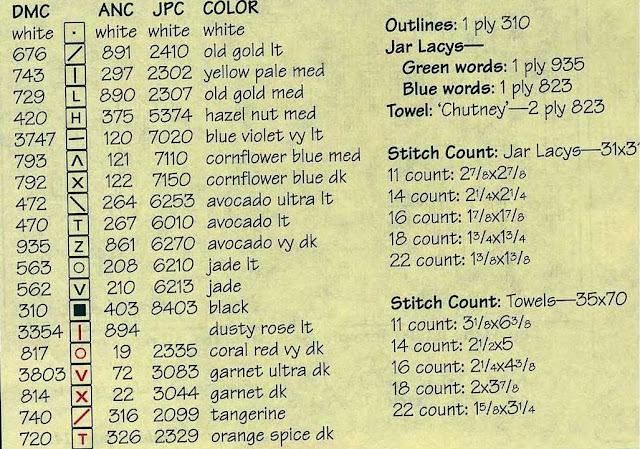 DMC ANC JPC COLOR
white · white white white
676 / 891 2410 old gold lt
743 | 297 2302 yellow pale med
729 L 890 2307 old gold med
420 H 375 5374 hazel nut med
3747 — 120 7020 blue violet vy lt
793 ^ 121 7110 cornflower blue med
792 X 122 7150 cornflower blue dk
472 \ 264 6253 avocado ultra lt
470 T 267 6010 avocado lt
935 Z 861 6270 avocado vy dk
563 O 208 6210 jade lt
562 V 210 6213 jade
310 ■ 403 8403 black
3354 | 894 dusty rose lt
817 O 19 2335 coral red vy dk
3803 V 72 3083 garnet ultra dk
814 X 22 3044 garnet dk
740 / 316 2099 tangerine
720 T 326 2329 orange spice dk
Outlines: 1 ply 310
Jar Lacys—
Green words: 1 ply 935
Blue words: 1 ply 823
Towel: 'Chutney'—2 ply 823
Stitch Count: Jar Lacys—31x31
11 count: 2 7/8x2 7/8
14 count: 2 1/4x2 1/4
16 count: 1 7/8x1 7/8
18 count: 1 3/4x1 3/4
22 count: 1 3/8x1 3/8
Stitch Count: Towels—35x70
11 count: 3 1/8x6 3/8
14 count: 2 1/2x5
16 count: 2 1/4x4 3/8
18 count: 2x3 7/8
22 count: 1 5/8x3 1/4